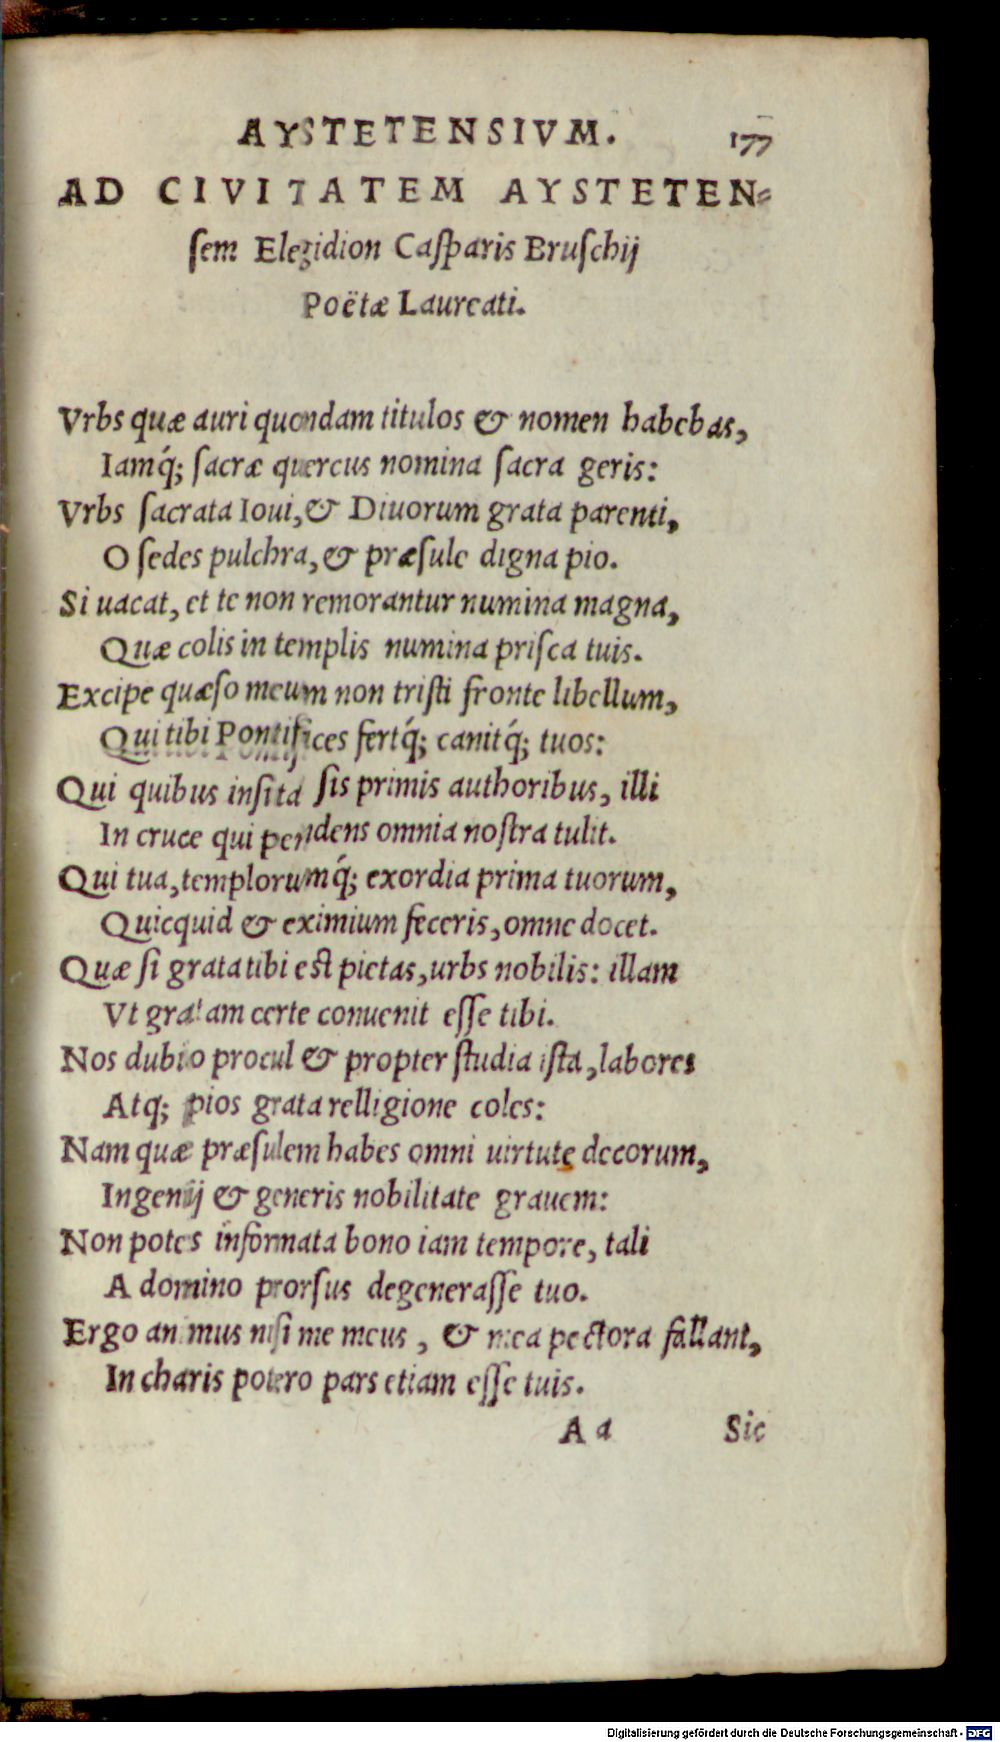 AYSTETENSIVM. 177
AD CIVITATEM AYSTETEN⸗
ſem Elegidion Caſparis Bruſchij
Poëtæ Laureati.
Vrbs quæ auri quondam titulos & nomen habebas,
Iamq́; ſacræ quercus nomina ſacra geris:
Vrbs ſacrata Ioui, & Diuorum grata parenti,
O ſedes pulchra, & præſule digna pio.
Si uacat, et te non remorantur numina magna,
Quæ colis in templis numina priſca tuis.
Excipe quæſo meum non triſti fronte libellum,
Qui tibi Pontifices fertq́; canitq́; tuos:
Qui quibus inſita ſis primis authoribus, illi
In cruce qui pendens omnia noſtra tulit.
Qui tua, templorumq́; exordia prima tuorum,
Quicquid & eximium feceris, omne docet.
Quæ ſi grata tibi eſt pietas, urbs nobilis: illam
Vt gratam certe conuenit eſſe tibi.
Nos dubio procul & propter ſtudia iſta, labores
Atq; pios grata relligione coles:
Nam quæ præſulem habes omni uirtute decorum,
Ingenij & generis nobilitate grauem:
Non potes informata bono iam tempore, tali
A domino prorſus degeneraſſe tuo.
Ergo animus niſi me meus, & mea pectora fallant,
In charis potero pars etiam eſſe tuis.
Aa Sic
Digitalisierung gefördert durch die Deutsche Forschungsgemeinschaft - DFG